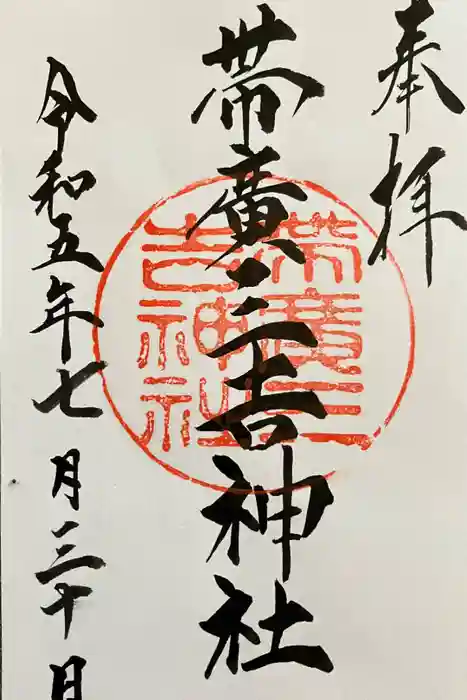 奉拝
帯廣三吉神社
令和五年七月三十日
帯廣三
吉神社